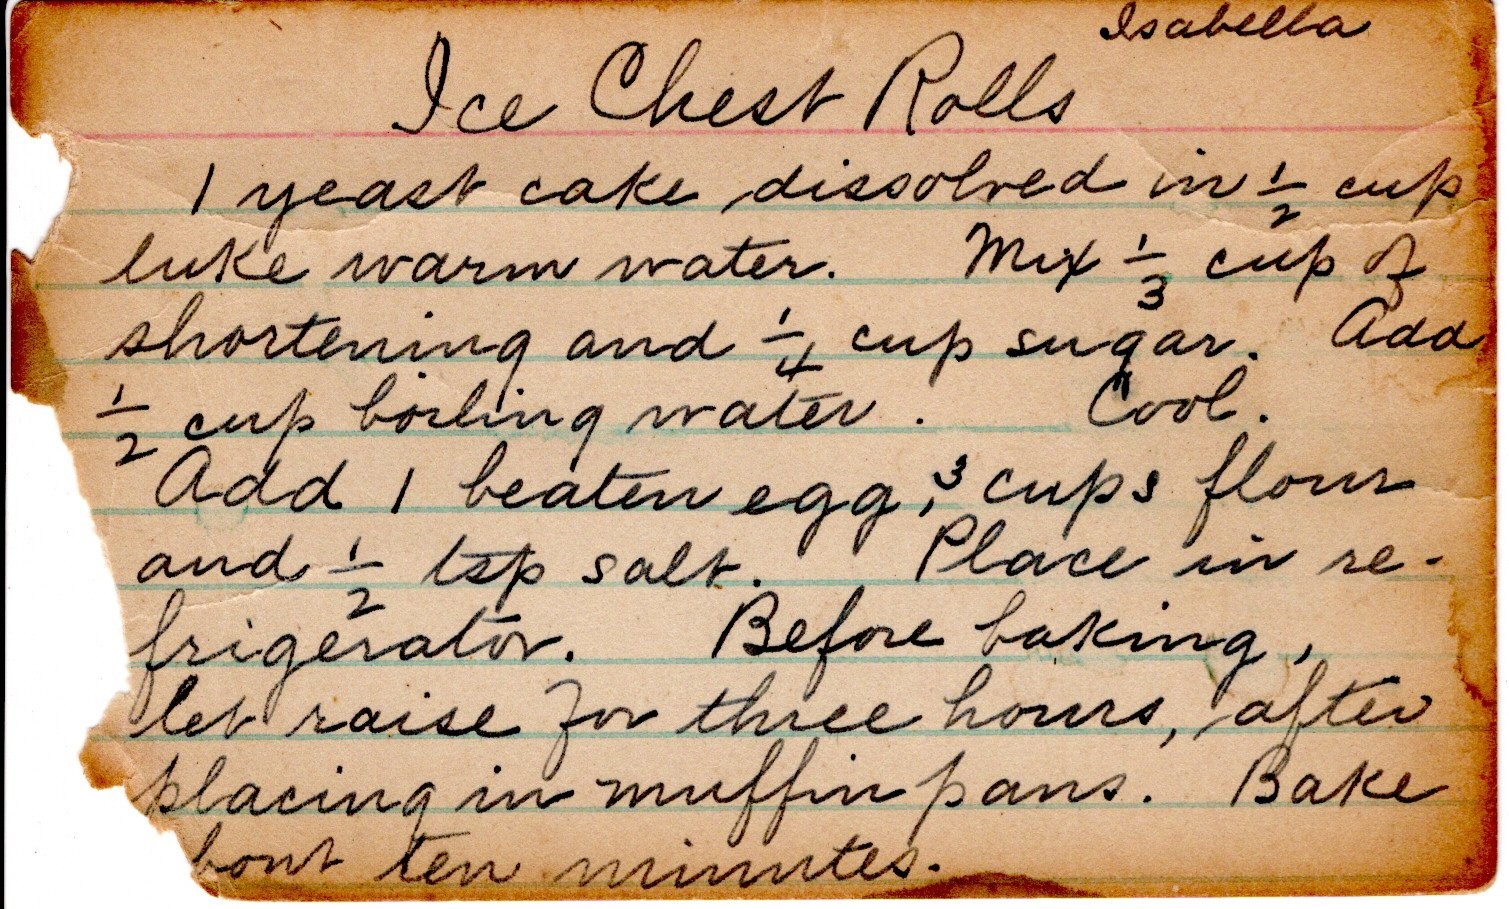 Isabella
Ice Chest Rolls
1 yeast cake dissolved in 1/2 cup
luke warm water. Mix 1/3 cup of
shortening and 1/4 cup sugar. Add
1/2 cup boiling water. Cool.
Add 1 beaten egg, 3 cups flour
and 1/2 tsp salt. Place in re-
frigerator. Before baking,
let raise for three hours, after
placing in muffin pans. Bake
bout ten minutes.